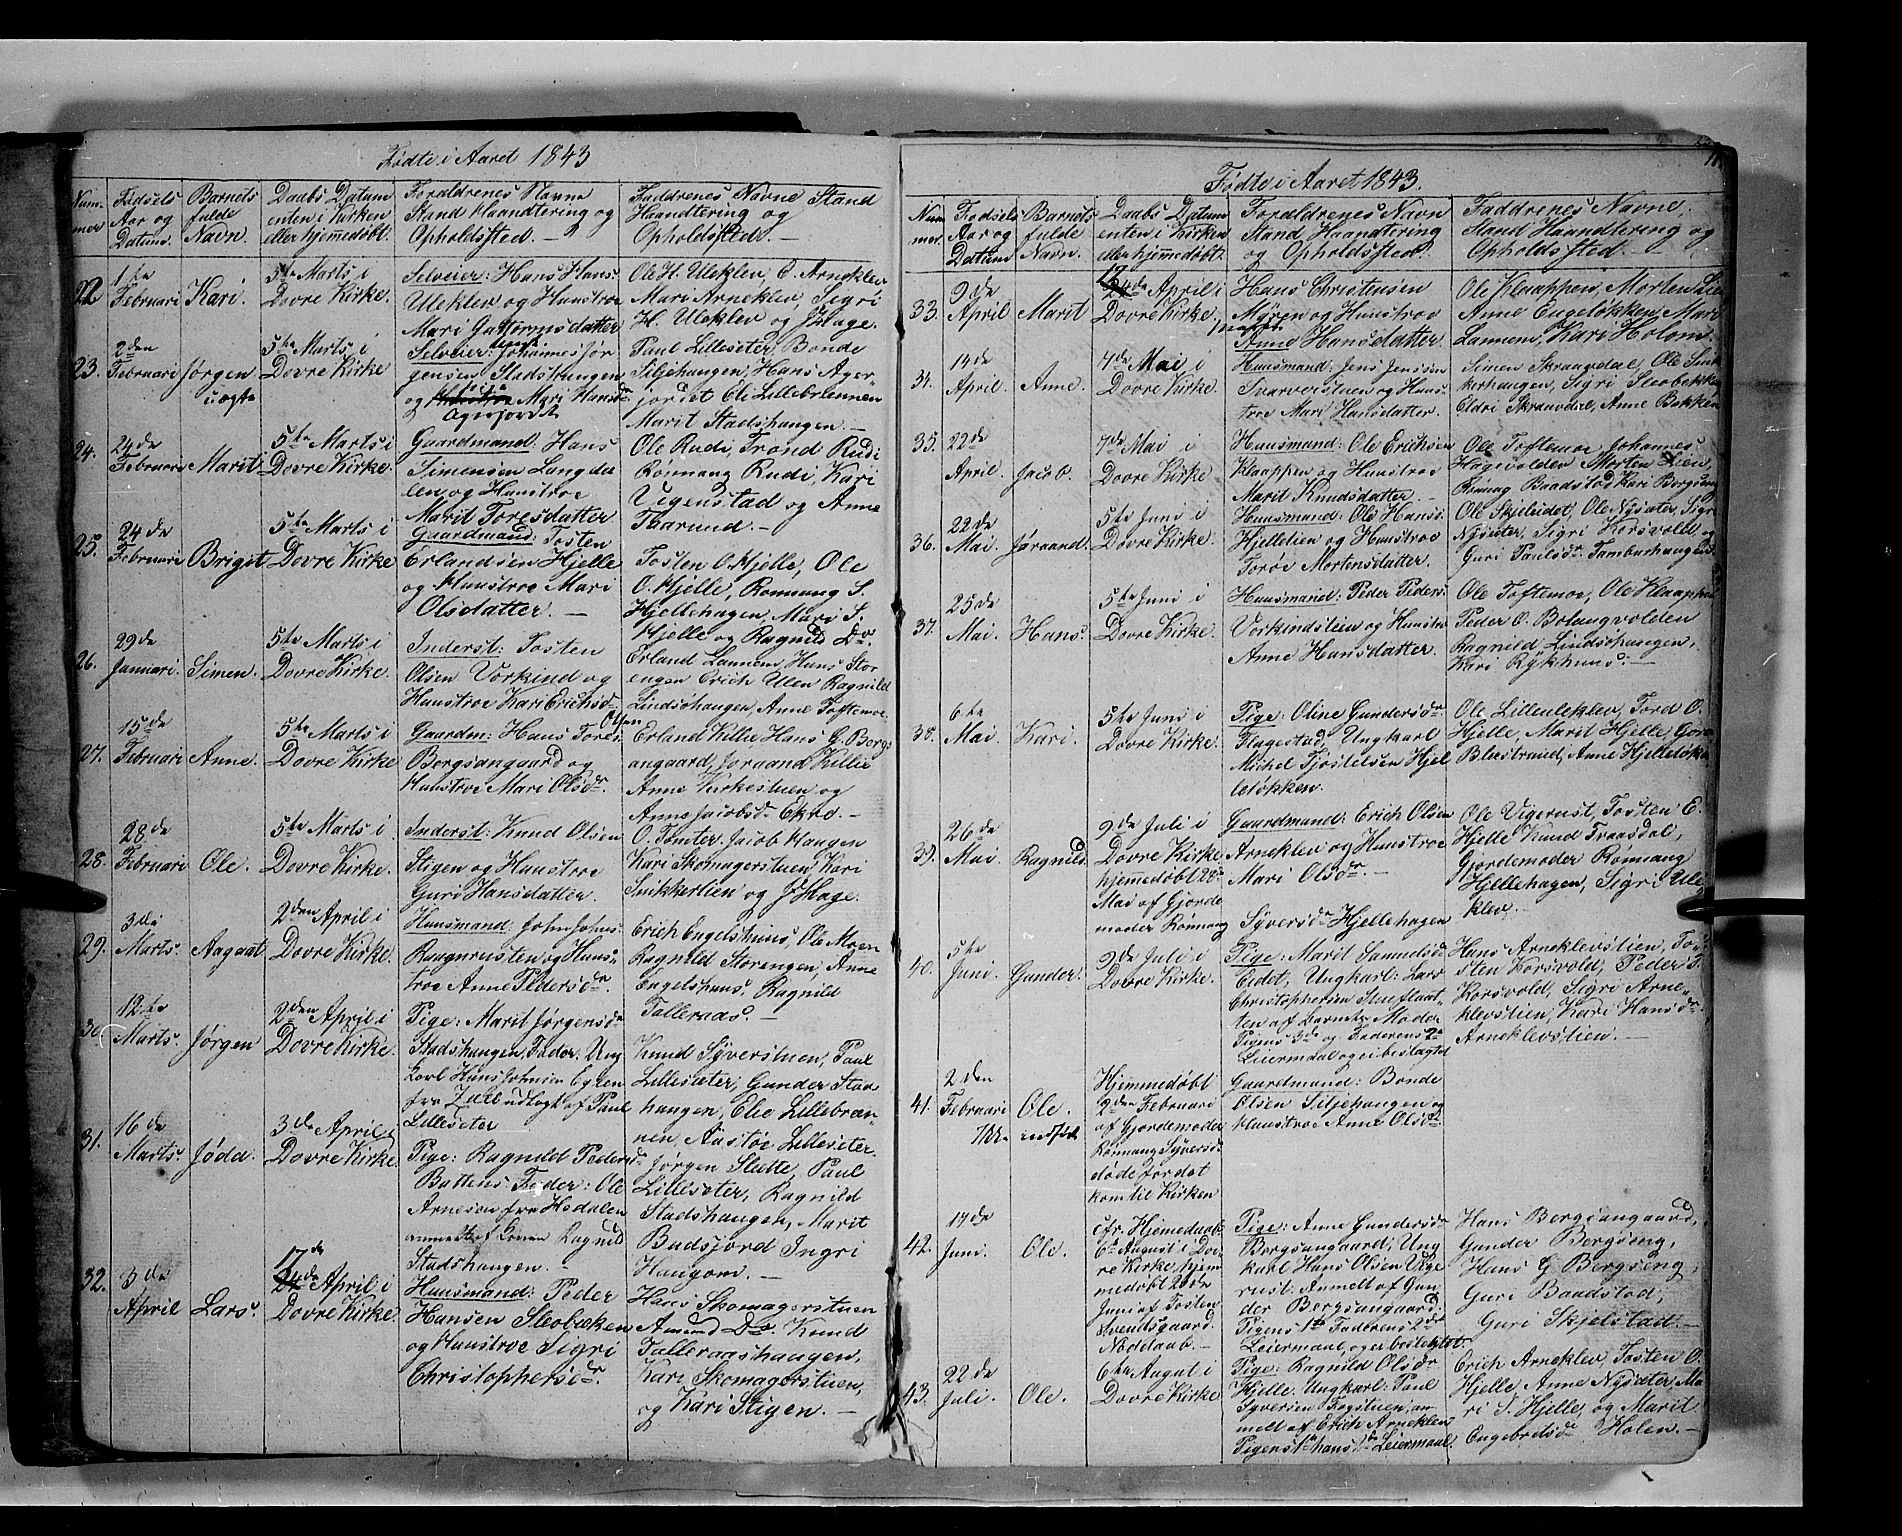 Fødte i Aaret 1843
Num-
mer
Fødsels
Aar og
Datum.
Barnets
fulde
Navn.
Daabs Datum
enten i Kirken
eller hjemmedøbt.
Forældrenes Navne
Stand Haandtering og
Opholdssted. —
Faddrenes Navne Stand
Haandtering og
Opholdssted. —
22
1ste
Februari
Kari.
5te Marts i
Dovre Kirke.
Selveier: Hans Hans:
Uleklev og Hustroe
Mari Guttormsdatter
Ole H. Uleklev, O. Arneklev
Mari Arneklev, Sigri
H. Uleklev og J Hage.
23.
2den
Februari
Jørgen
uægte
5te Marts i
Dovre Kirke
Selveier: Johannes Jør
gensen Stadshaugen
og Mari Hansdr
Agerjordet
Paul Lilleseter, Bonde
Siljehaugen, Hans Ager-
jordet Eli Lillebrennen
Marit Stadshaugen —
24.
24de
Februari
Marit
5te Marts i
Dovre Kirke.
Gaardmand: Hans
Simensen Langda
len og Hustroe
Marit Toresdatter
Ole Rudi, Trond Rudi
Rønnang Rudi, Kari
Vigenstad og Anne
Taarund. —
25.
24de
Februari
Briget
5te Marts i
Dovre Kirke
Gaardmand: Tosten
Erlandsen Hjelle
og Hustroe Mari
Olsdatter. —
Tosten O. Hjelle, Ole
O. Hjelle, Rønnang S.
Hjellehagen, Mari S.
Hjelle og Ragnild Do
26.
29de
Januari.
Simen.
5te Marts i
Dovre Kirke.
Inderst: Tosten
Olsen Vorkind og
Hustroe Kari Erichsdr
Erland Lannem, Hans Stor
engen Erich Ulen Ragnild
Lindshaugen, Anne Toftemoe.
27.
15de
Februari
Anne.
5te Marts i
Dovre Kirke
Olsen
Gaardm: Hans Tores:
Borgsangaard og
Hustroe Mari Olsdr.
Erland Killie Hans G. Borgs
angaard, Joraand Killie
Anne Kirkestuen og
Anne Jacobsdr Ekre. —
28.
28de
Februari
Ole.
5te Marts i
Dovre Kirke.
Inderst: Knud Olsen
Stigen og Hustroe
Guri Hansdatter.
O. Tomter, Jacob Haugen
Kari Skomagerstuen Kari
Snikkerlien og J Hage.
29.
3de
Marts.
Aagaat
2den April i
Dovre Kirke.
Huusmand: John Johns:
Raugnreisten og Hus-
troe Anne Pedersdr.
Erich Engelshuus, Ole Moen
Ragnild Storengen, Anne
Engelshuus, Ragnild
Talleraas. —
30
12te
Marts.
Jørgen
2den April i
Dovre Kirke.
Pige: Marit Jørgensdr
Stadshaugen, Fader: Ung
karl Hans Johnsen Eggen
fra udlagt af Paul
Lilleseter
Knud Syverstuen, Paul
Lilleseter, Gunder Stads
haugen, Elie Lillebræn-
nen, Aastøe Lilleseter.
31.
16de
Marts.
Jødd.
3de April i
Dovre Kirke
Pige: Ragnild Pedersdr
Batten Fader: Ole
Arnesen fra Hedalen
anmeldt af Konen Ragnild
Stadshaugen. —
Jørgen Slette, Paul
Lilleseter, Ragnild
Stadshaugen, Marit
Budsjord Ingri
Haugom. —
32.
3de
April
Lars.
17de
24de April i
Dovre Kirke.
Huusmand: Peder
Hansen Sleobækken
og Hustroe Sigri
Christophersdr.
Hans Skomagerstuen
Amund Do. Knud
Talleraashaugen,
Kari Skomagerstuen,
og Kari Stigen. —
Fødte i Aaret 1843.
Num
mer.
Fødsels
Aar og
Datum
Barnets
fulde
Navn.
Daabs Datum
enten i Kirken
eller hjemmedøbt.
Forældrenes Navn
Stand Haandtering
og Opholdssted.
Faddrenes Navne.
Stand Haandtering og
Opholdssted. —
33.
9de
April
Marit
17
24de April i
Dovre Kirke.
Hans Christensen
Myren og Hustroe
Anne Hansdatter.
Ole Klaappen, Morten Lien
Anne Engeløkken, Mari
Lannem, Kari Holom.
34.
14de
April.
Anne.
7de Mai i
Dovre Kirke.
Huusmand: Jens Jenssen
Svarverstuen og Hus-
troe Mari Hansdatter.
Simen Skraagdal, Ole Snik
kerhaugen, Sigri Sleobekken
Eldri Skraavdal, Anne Bakken
35.
22de
April.
Jacob.
7de Mai i
Dovre Kirke
Huusmand: Ole Erichsen
Klaappen og Hustroe
Marit Knudsdatter. —
Ole Toftemoe Johannes
Hagevolden Morten Lien,
Rønnog Baadstad, Kari Bergseng
36.
22de
Mai.
Jøraand.
5te Juni i
Dovre Kirke.
Huusmand: Ole Hans:
Hjellelien og Hustroe
Torøe Mortensdatter.
Ole Skjelidet, Ole Nysæter, Sigri
Nyseter, Sigri Korsvold, og
Guri Paulsdr. Tamburhaugen
37.
25de
Mai.
Hans.
5te Juni i
Dovre Kirke.
Huusmand: Peder Peders:
Vorkindslien og Hustroe
Anne Hansdatter.
Ole Toftemoe, Ole Klaappen
Peder O. Bolangvolden
Ragnild Lindsohaugen,
Kari Rykhuus. —
38.
6te
Mai.
Kari.
5te Juni i
Dovre Kirke.
Pige: Oline Gundersdr
Flagestad, Ungkarl
Michel Tjostelsen Hjel
leløkken.
Ole Lilleuleklev, Tord O.
Hjelle, Marit Hjelle, Goro
Bleestrand, Anne Hjelleløkken
39.
26de
Mai.
Ragnild.
2de Juli i
Dovre Kirke
hjemmedøbt 28de
Mai af Gjorde
moder Rønnang
Syversdr Hjellehagen
Gaardmand: Erich Olsen
Arneklev og Hustroe
Mari Olsdr. —
Ole Vigerust, Tosten E.
Hjelle Knud Traasdal,
Gjordemoder Rønnang
Hjellehagen, Sigri Ule-
klev.
40.
5te
Juni.
Gunder.
2de Juli i
Dovre Kirke.
Pige: Marit Samuelsdr
Eidet, Ungkarl: Lars
Christophersen Stueflaat-
ten af Barnets Moder
Pigens 3de og Faderens 2de
Leiermaal og ei beslægtet
Hans Arneklevslien, To-
sten Korsvold, Peder T.
Korsvold, Sigri Arne-
klevslien, Kari Hansdr
Arneklevslien. —
41.
2den
Februari
Ole.
Hjemmedøbt
2den Februari
af Gjordemoder
Rønnang Syversdr
døde før det
kom til Kirken
Gaardmand: Bonde
Olsen Siljehaugen og
Hustroe Anne Olsdr
42.
14de
Juni.
Ole.
cfr. Hjemedaab
6te August i Dov-
re Kirke, hjem
medøbt 20de
Juni af Tosten
Svendsgaard.
Nøddaab. —
Pige: Anne Gundersdr
Borgsangaard; Ung
karl Hans Olsen Vige
rust. Anmelt af Gun
der Borgsangaard.
Pigens 1ste Faderens 2de
Leiermaal, og er beslegtet.
Hans Bergsangaard,
Gunder Bergseng,
Hans G Bergseng,
Guri Baadstad,
Guri Skjelstad. —
43.
22de
Juli.
Ole.
6te August i
Dovre Kirke
Pige: Ragnild Olsdr
Hjelle, Ungkarl: Paul
Syversen Fogstuen, an
melt af Erich Arneklev
Pigens 1ste hans 1ste Leiermaal.
Erich Arneklev, Tosten O.
Hjelle Anne Nysæter, Ma
ri S. Hjelle, og Marit
Ongebretsdr Holen. —